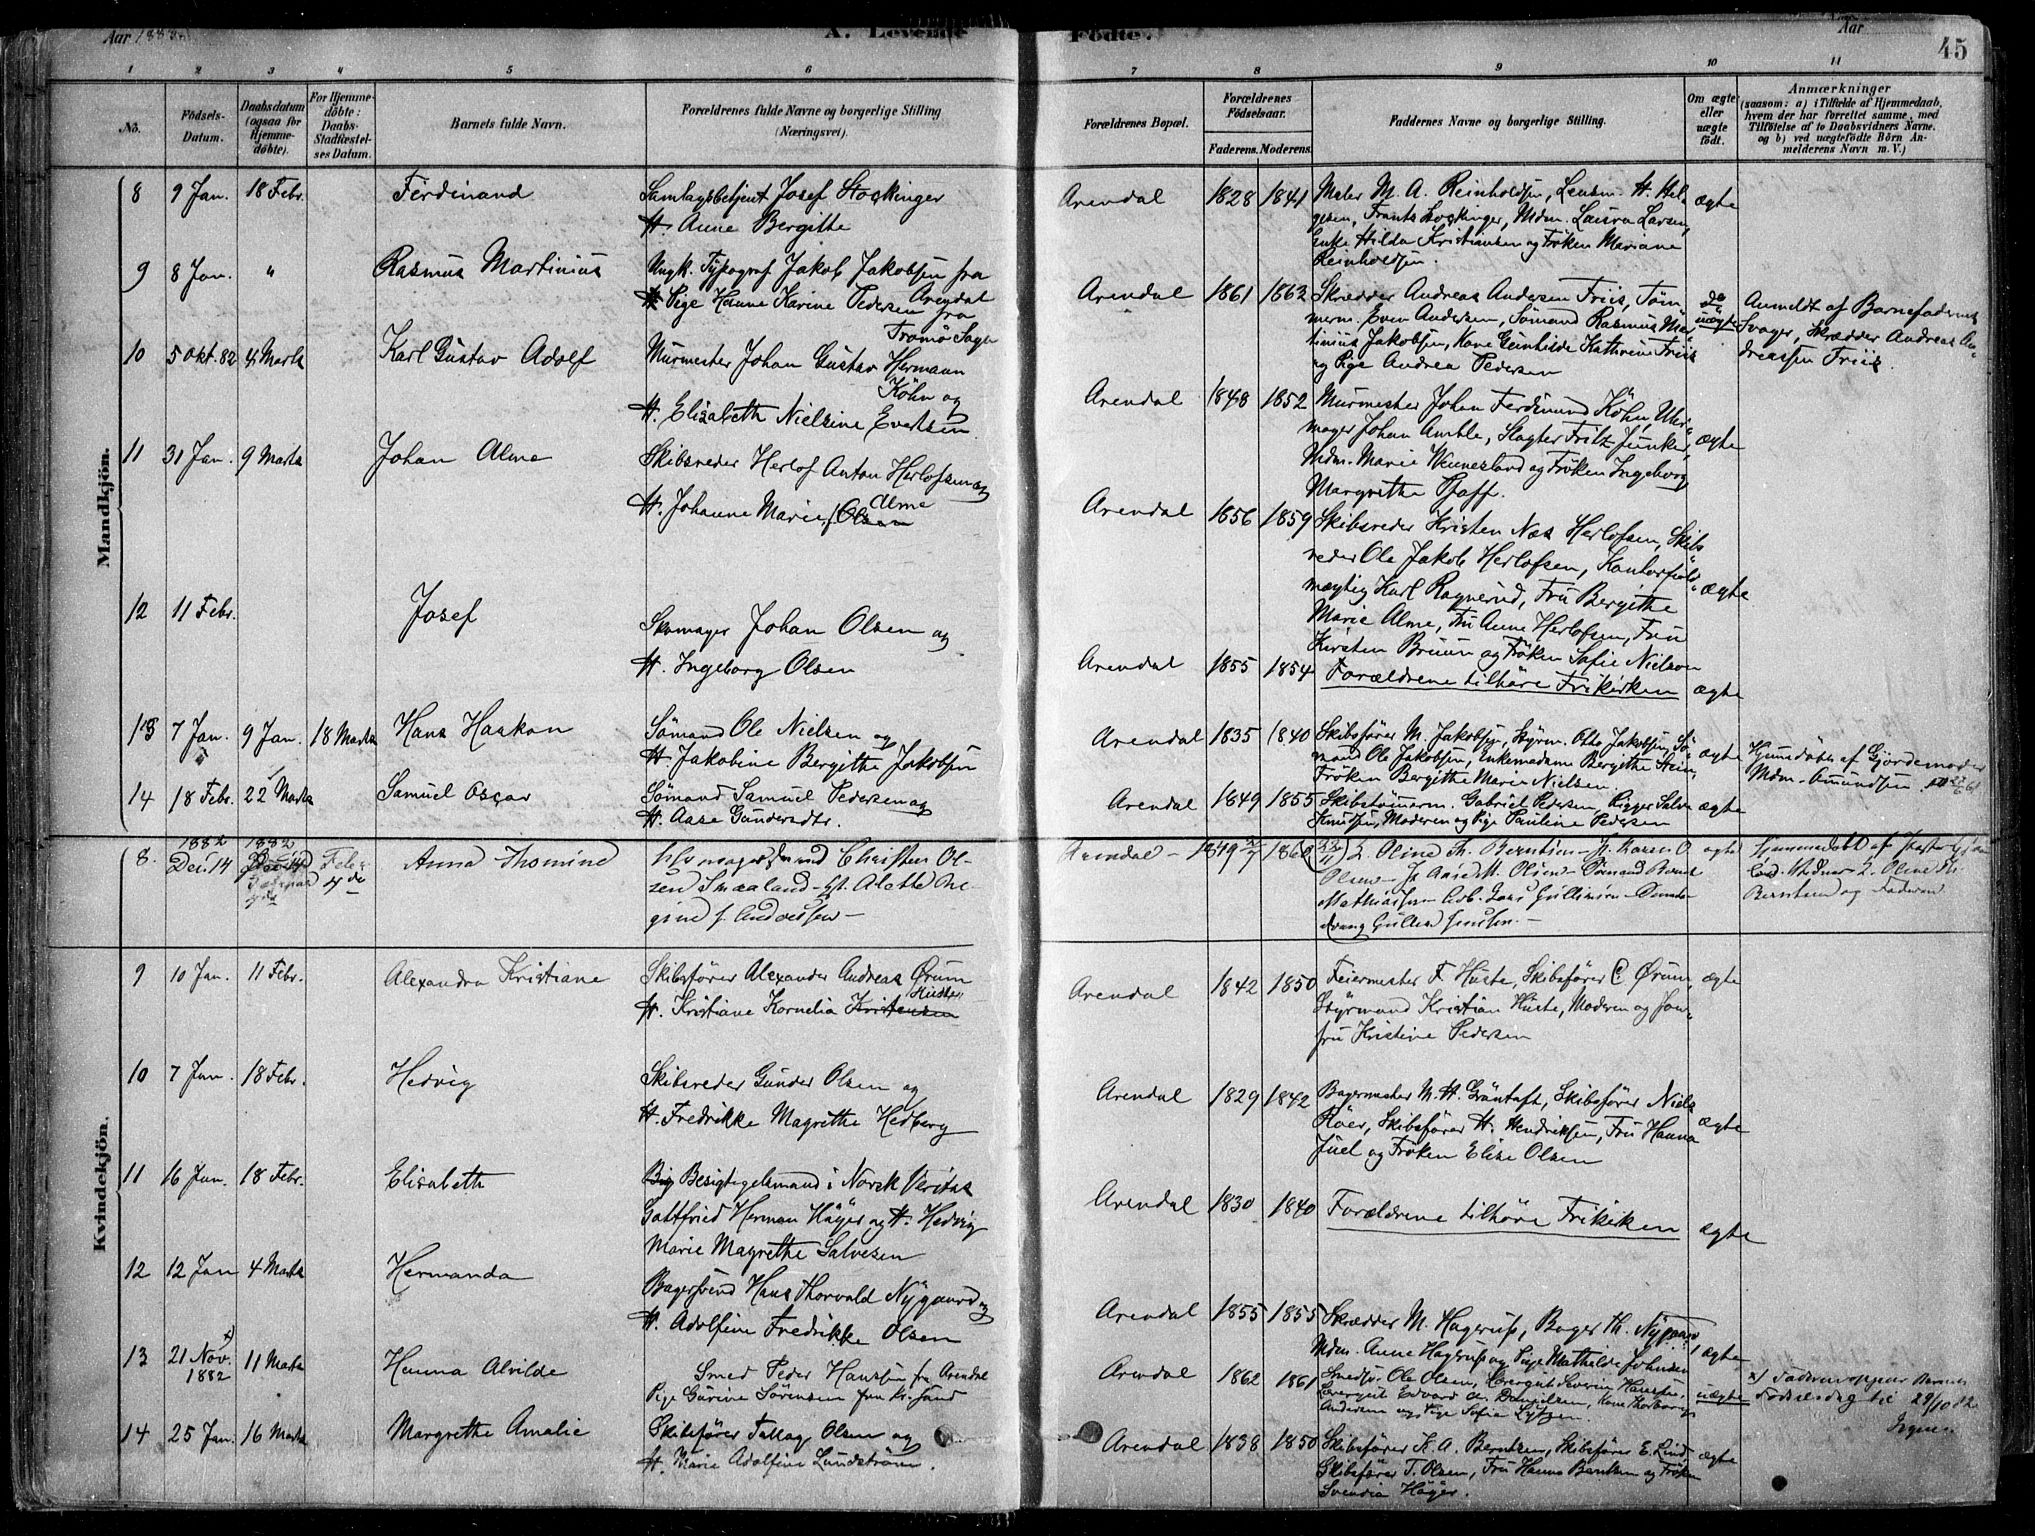 Aar 1883.
A. Levende Fødte.
Aar
45
1 2 3 4 5 6 7 8 9 10 11
No.
Fødsels-
Datum.
Daabsdatum
(ogsaa for
Hjemme-
døbte).
For Hjemme-
døbte:
Daabs-
Stadfæstel-
ses Datum.
Barnets fulde Navn.
Forældrenes fulde Navne og borgerlige Stilling
(Næringsvei).
Forældrenes Bopæl.
Forældrenes
Fødselsaar.
Faderens. Moderens.
Faddernes Navne og borgerlige Stilling.
Om ægte
eller
uægte
født.
Anmærkninger
(saasom: a) i Tilfælde af Hjemmedaab,
hvem der har forrettet samme, med
Tilføielse af to Daabsvidners Navne.
og b) ved uægtefødte Børn An-
melderens Navn m. V.)
Mandkjøn.
8 9 Jan. 18 Febr. Ferdinand
Samlagsbetjent Josef Hockinger
H. Anne Bergithe
Arendal 1828 1841
Maler M. A. Reinholdsen, Lensm. H. Hel-
gesen, Frants Hockinger, Mdm. Laura Larsen,
Enke Hilda Kristiansen og Frøken Mariane
Reinholdsen.
ægte
9 8 Jan. " Rasmus Martinius
Ungk. Typograf Jakob Jakobsen fra
Arendal
Pige Hanne Karine Pedersen fra
Tromø Sogn
Arendal 1861 1863
Skrædder Andreas Andersen Friis, Tøm
merm. Even Andersen, Sømand Rasmus Mar-
tinius Jakobsen, Kone Gunhilde Kathrine Friis
og Pige Andrea Pedersen
uægte
Anmeldt af Barnefaderens
Svoger, Skrædder Andreas An-
dreassen Friis.
10 5 Okt. 82 4 Marts Karl Gustav Adolf
Murmester Johan Gustav Hermann
Köhn og
H. Elisabeth Nielsine Evertsen
Arendal 1848 1852
Murmester Johan Ferdinand Köhn, Uhr-
mager Johan Amble, Slagter Fritz Junker,
Mdm. Marie Wennesland og Frøken Ingeborg
Margrethe Pfaff.
ægte
11 31 Jan. 9 Marts Johan Alme
Skibsreder Herlof Anton Herlofsen og
H. Johanne Marie f. Olsen Alme
Arendal 1856 1859
Skibsreder Kristen Næs Herlofsen, Skibs
reder Ole Jakob Herlofsen, Kontorfuld-
mægtig Karl Ragnerud, Fru Bergithe
Marie Alme, Fru Anne Herlofsen, Fru
Kirsten Bruun og Frøken Sofie Nielsen
ægte
12 11 Febr. Josef
Skomager Johan Olsen og
H. Ingeborg Olsen
Arendal 1855 1854
Forældrene tilhøre Frikirken
ægte
13 7 Jan. 9 Jan. 18 Marts Hans Haakon
Sømand Ole Nielsen og
H. Jakobine Bergithe Jakobsen
Arendal 1835 1840
Skibsfører M. Jakobsen, Styrm. Otto Jakobsen, Sø-
mand Ole Jakobsen, Enkemadame Bergithe Stein,
Frøken Bergithe Marie Nielsen.
ægte
Hjemdøbt af Gjordemoder
Mdm. Amundsen
14 18 Febr. 22 Marts Samuel Oscar
Sømand Samuel Pedersen og
H. Aase Gundersdtr.
Arendal 1849 1855
Skibstømerm. Gabriel Pedersen, Rigger Salve
Knudsen, Moderen og Pige Pauline Pedersen
ægte
Kvindekjøn.
8. 1882 Dec. 14 1882 Anna Thomine
Christen Ol-
sen Smaaland - H. Alette An-
gine f. Andersen -
Arendal - 1849 1860
Oline Th. Berntsen - Karen O
Olsen - Aase M. Olsen - Sømand Bernt
Mathiassen -
ægte
Hjemmedøbt af
Oline Th.
Berntsen og Faderen
9 10 Jan. 11 Febr. Alexandra Kristiane
Skibsfører Alexander Andreas Ørum
Huste
H. Kristiane Kornelia Kristensen
Arendal 1842 1850
Feiermester F. Huste, Skibsfører C. Ørum,
Styrmand Kristian Huste, Moderen og Jom-
fru Kristine Pedersen
ægte
10 7 Jan. 18 Febr. Hedvig
Skibsreder Gunder Olsen og
H. Fredrikke Magrethe Hedberg
Arendal 1829 1842
Bagermester M. H. Grøntoft, Skibsfører Niels
Röer, Skibsfører H. Hendriksen, Fru Hanna
Juel og Frøken Elise Olsen
ægte
11 16 Jan. 18 Febr. Elisabeth
Big Besigtigelsmand i Norsk Veritas
Gottfried Herman Häger og H. Hedvig
Marie Magrethe Salvesen
Arendal 1830 1840
Forældrene tilhøre Frikirken
ægte
12 12 Jan 4 Marts Hermanda
Bagersvend Hans Thorvald Nygaard og
H. Adolfine Fredrikke Olsen
Arendal 1855 1855
Skrædder M. Hagerup, Bager Th. Nygaard,
Mdm. Anne Hagerup og Pige Mathilde Johnsen
ægte
13 21 Nov. x) 1882 11 Marts Hanna Alvilde
Smed Peder Hansen fra Arendal
Pige Gurine Sørensen fra Kr.sand
Arendal 1862 1861
Smedsv. Ole Olsen, Severin Hansen,
Edvard Danielsen, Kone Thorborg
Andersen og Pige Sofie Lytzen.
uægte
x) Faderen opgav Barnets
Fødselsdag til 29/10 82
14 25 Jan. 16 Marts Margrethe Amalie
Skibsfører Tallag Olsen og
H. Marie Adolfine Lundstrøm.
Arendal 1838 1850
Skibsfører K. A. Berntsen, Skibsfører E. Lind
Skibsfører T. Olsen, Fru Hanna Berntsen og Frøken
Svendia Häger.
ægte